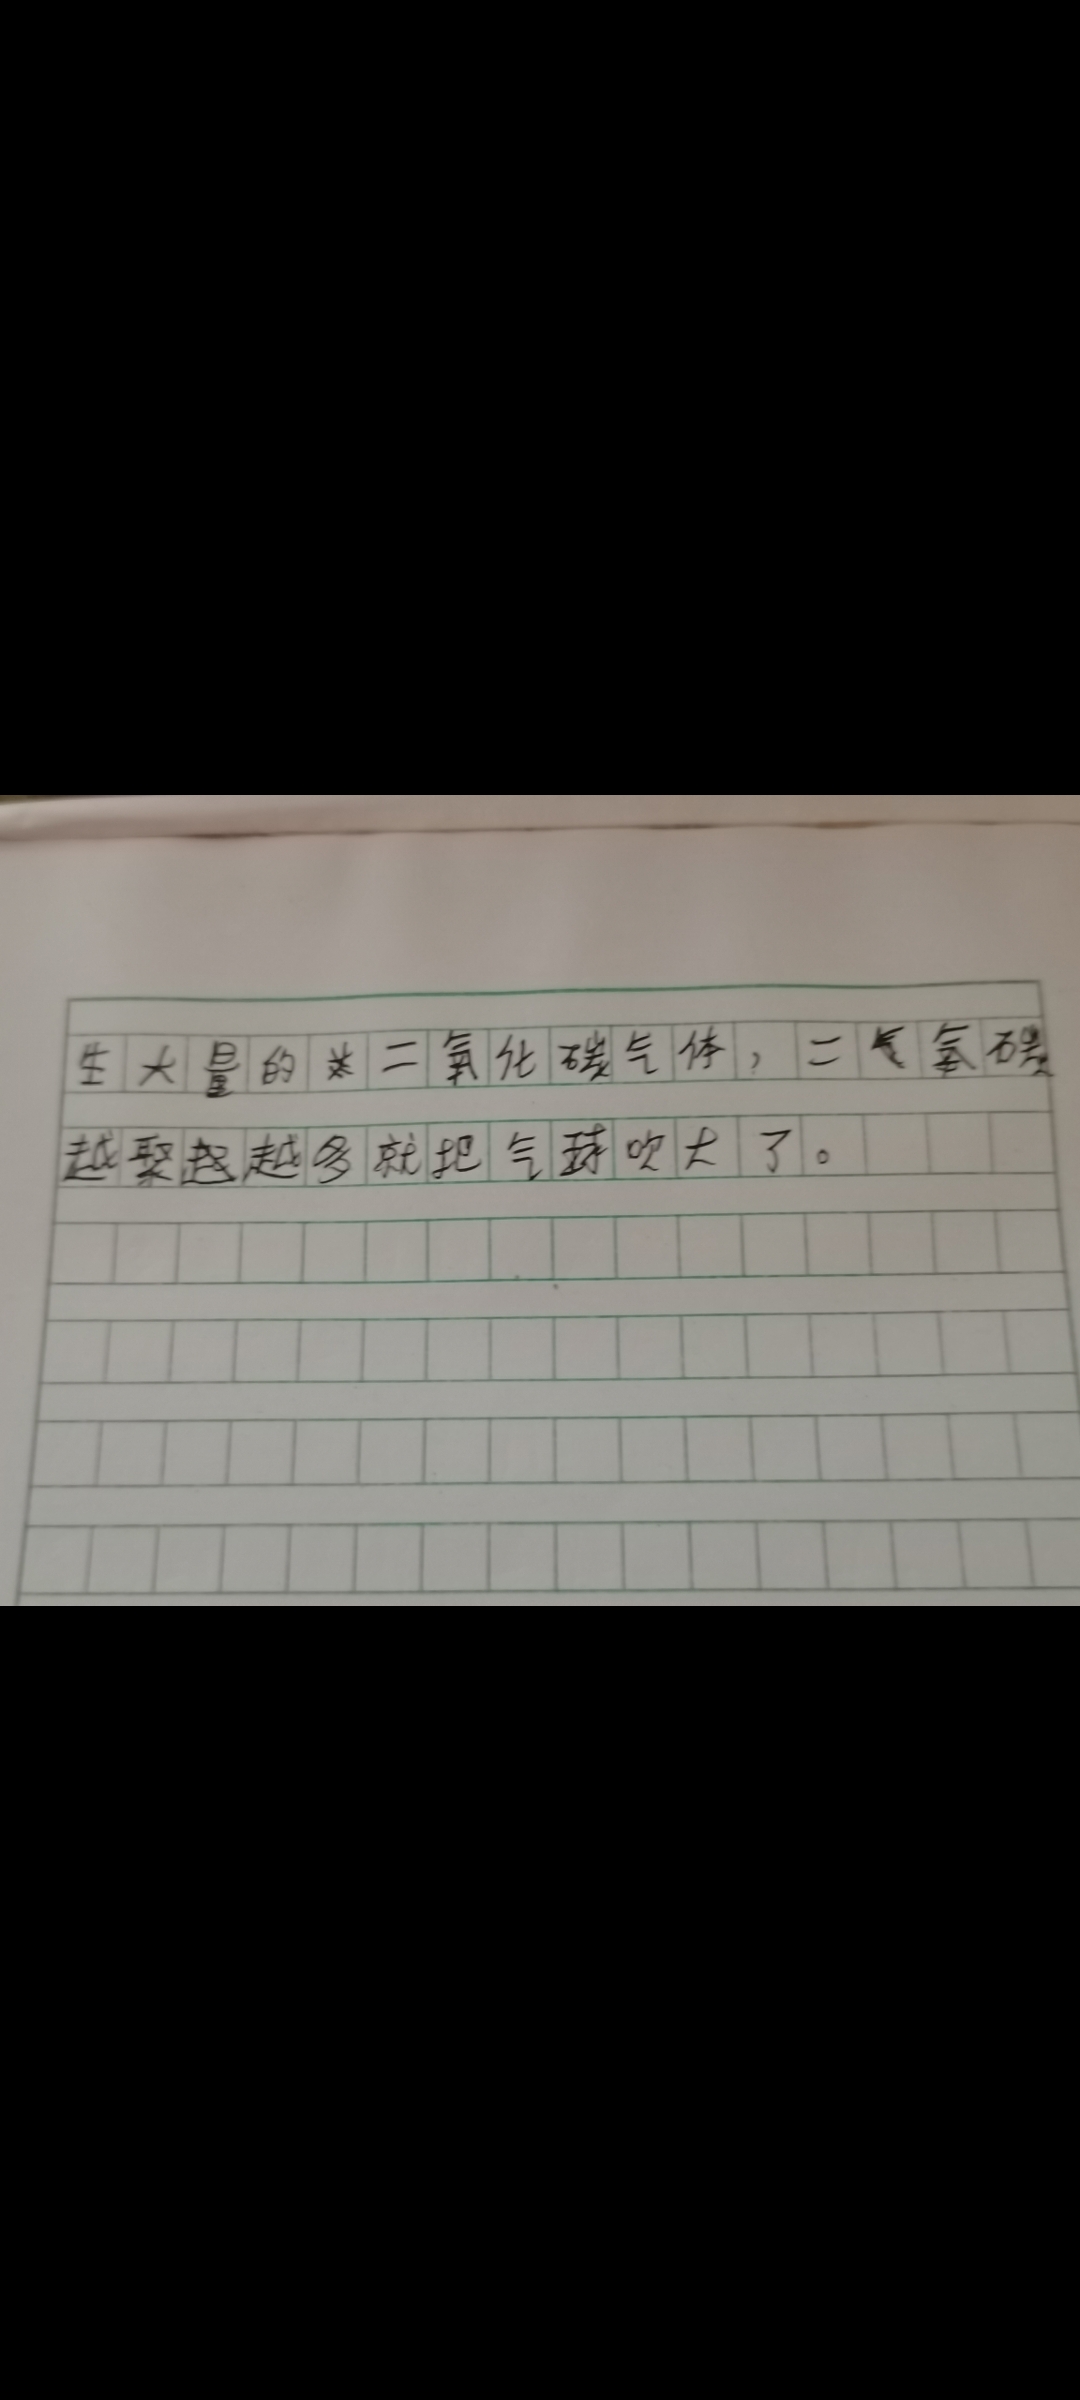 生大量的二氧化碳气体，二氧碳
越聚越越多就把气球吹大了。